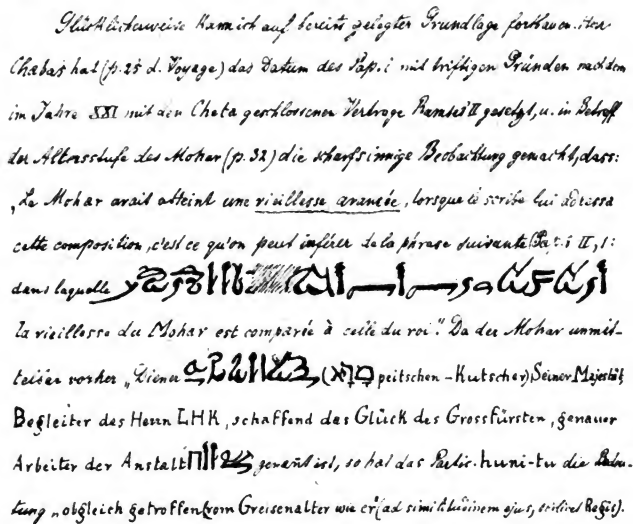 Glücklicherweise kann ich auf bereits gelegter Grundlage fortbauen.
Chabas hat (p. 25 d. Voyage) das Datum des Pap. i mit triftigen Gründen nach dem
im Jahre XXI mit den Cheta geschlossenen Vertrage Ramses II gesetzt, u. in Betreff
der Altersstufe des Mohar (p. 32) die scharfsinnige Beobachtung gemacht, dass:
„Le Mohar avait atteint une vieillesse avancée, lorsque le scribe lui adressa
cette composition, c'est ce qu'on peut inférer de la phrase suivante (Pap. i II, 1:
dans laquelle
la vieillesse du Mohar est comparée à celle du roi." Da der Mohar unmit-
telbar vorher „Diener (peitschen-Kutscher) Seiner Majestät,
Begleiter des Herrn LHK, schaffend das Glück des Grossfürsten, genauer
Arbeiter der Anstalt genannt ist, so hat das Partic. huni-tu die Bedeu-
tung „obgleich getroffen (vom Greisenalter wie er" (ad similitudinem ejus, scilicet Regis).